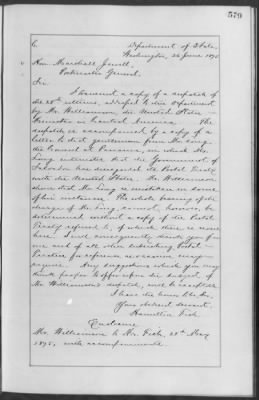 579
6.
Department of State,
Washington, 26 June 1875
Hon. Marshall Jewell,
Postmaster General.
Sir:
I transmit a copy of a despatch of
the 28th ultimo, addressed to this Department
by Mr. Williamson, the United States
Minister in Central America. The
despatch is accompanied by a copy of a
letter to that gentleman from Mr. Long
the Consul at Panama, in which Mr.
Long intimates that the Government of
Salvador has disregarded its Postal Treaty
with the United States. Mr. Williamson
shows that Mr. Long is mistaken in some
of his instances. The whole bearing of the
charge of Mr. Long cannot, however, be
determined without a copy of the Postal
Treaty referred to, of which there is none
here. I will consequently thank you for
one and of all other subsisting Postal
Treaties for reference as occasion may
require. Any suggestions which you may
think proper to offer upon the subject of
Mr. Williamson's despatch, will be acceptable.
I have the honor to be, Sir,
Your obedient servant,
Hamilton Fish
Enclosure
Mr. Williamson to Mr. Fish, 28th May
1875, with accompaniments